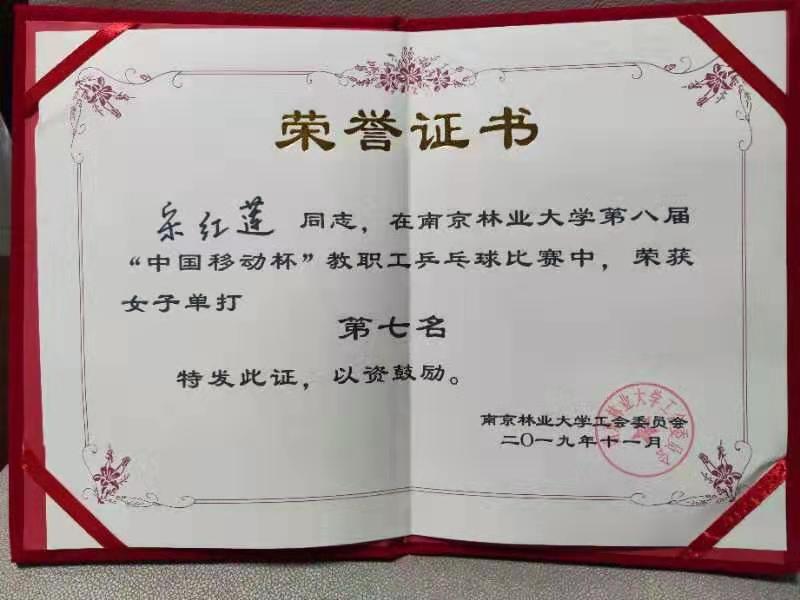 荣誉证书
宋红莲 同志，在南京林业大学第八届
“中国移动杯”教职工乒乓球比赛中，荣获
女子单打
第七名
特发此证，以资鼓励。
南京林业大学工会委员会
二〇一九年十一月